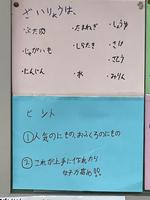 ざいりょうは、
・ぶた肉 ・たまねぎ ・しょうゆ
・じゃがいも ・しらたき ・さけ
・さとう
・にんじん ・水 ・みりん
ヒント
①人気のにもの、おふくろのにもの
②これが上手に作れたら
女子力高め!!